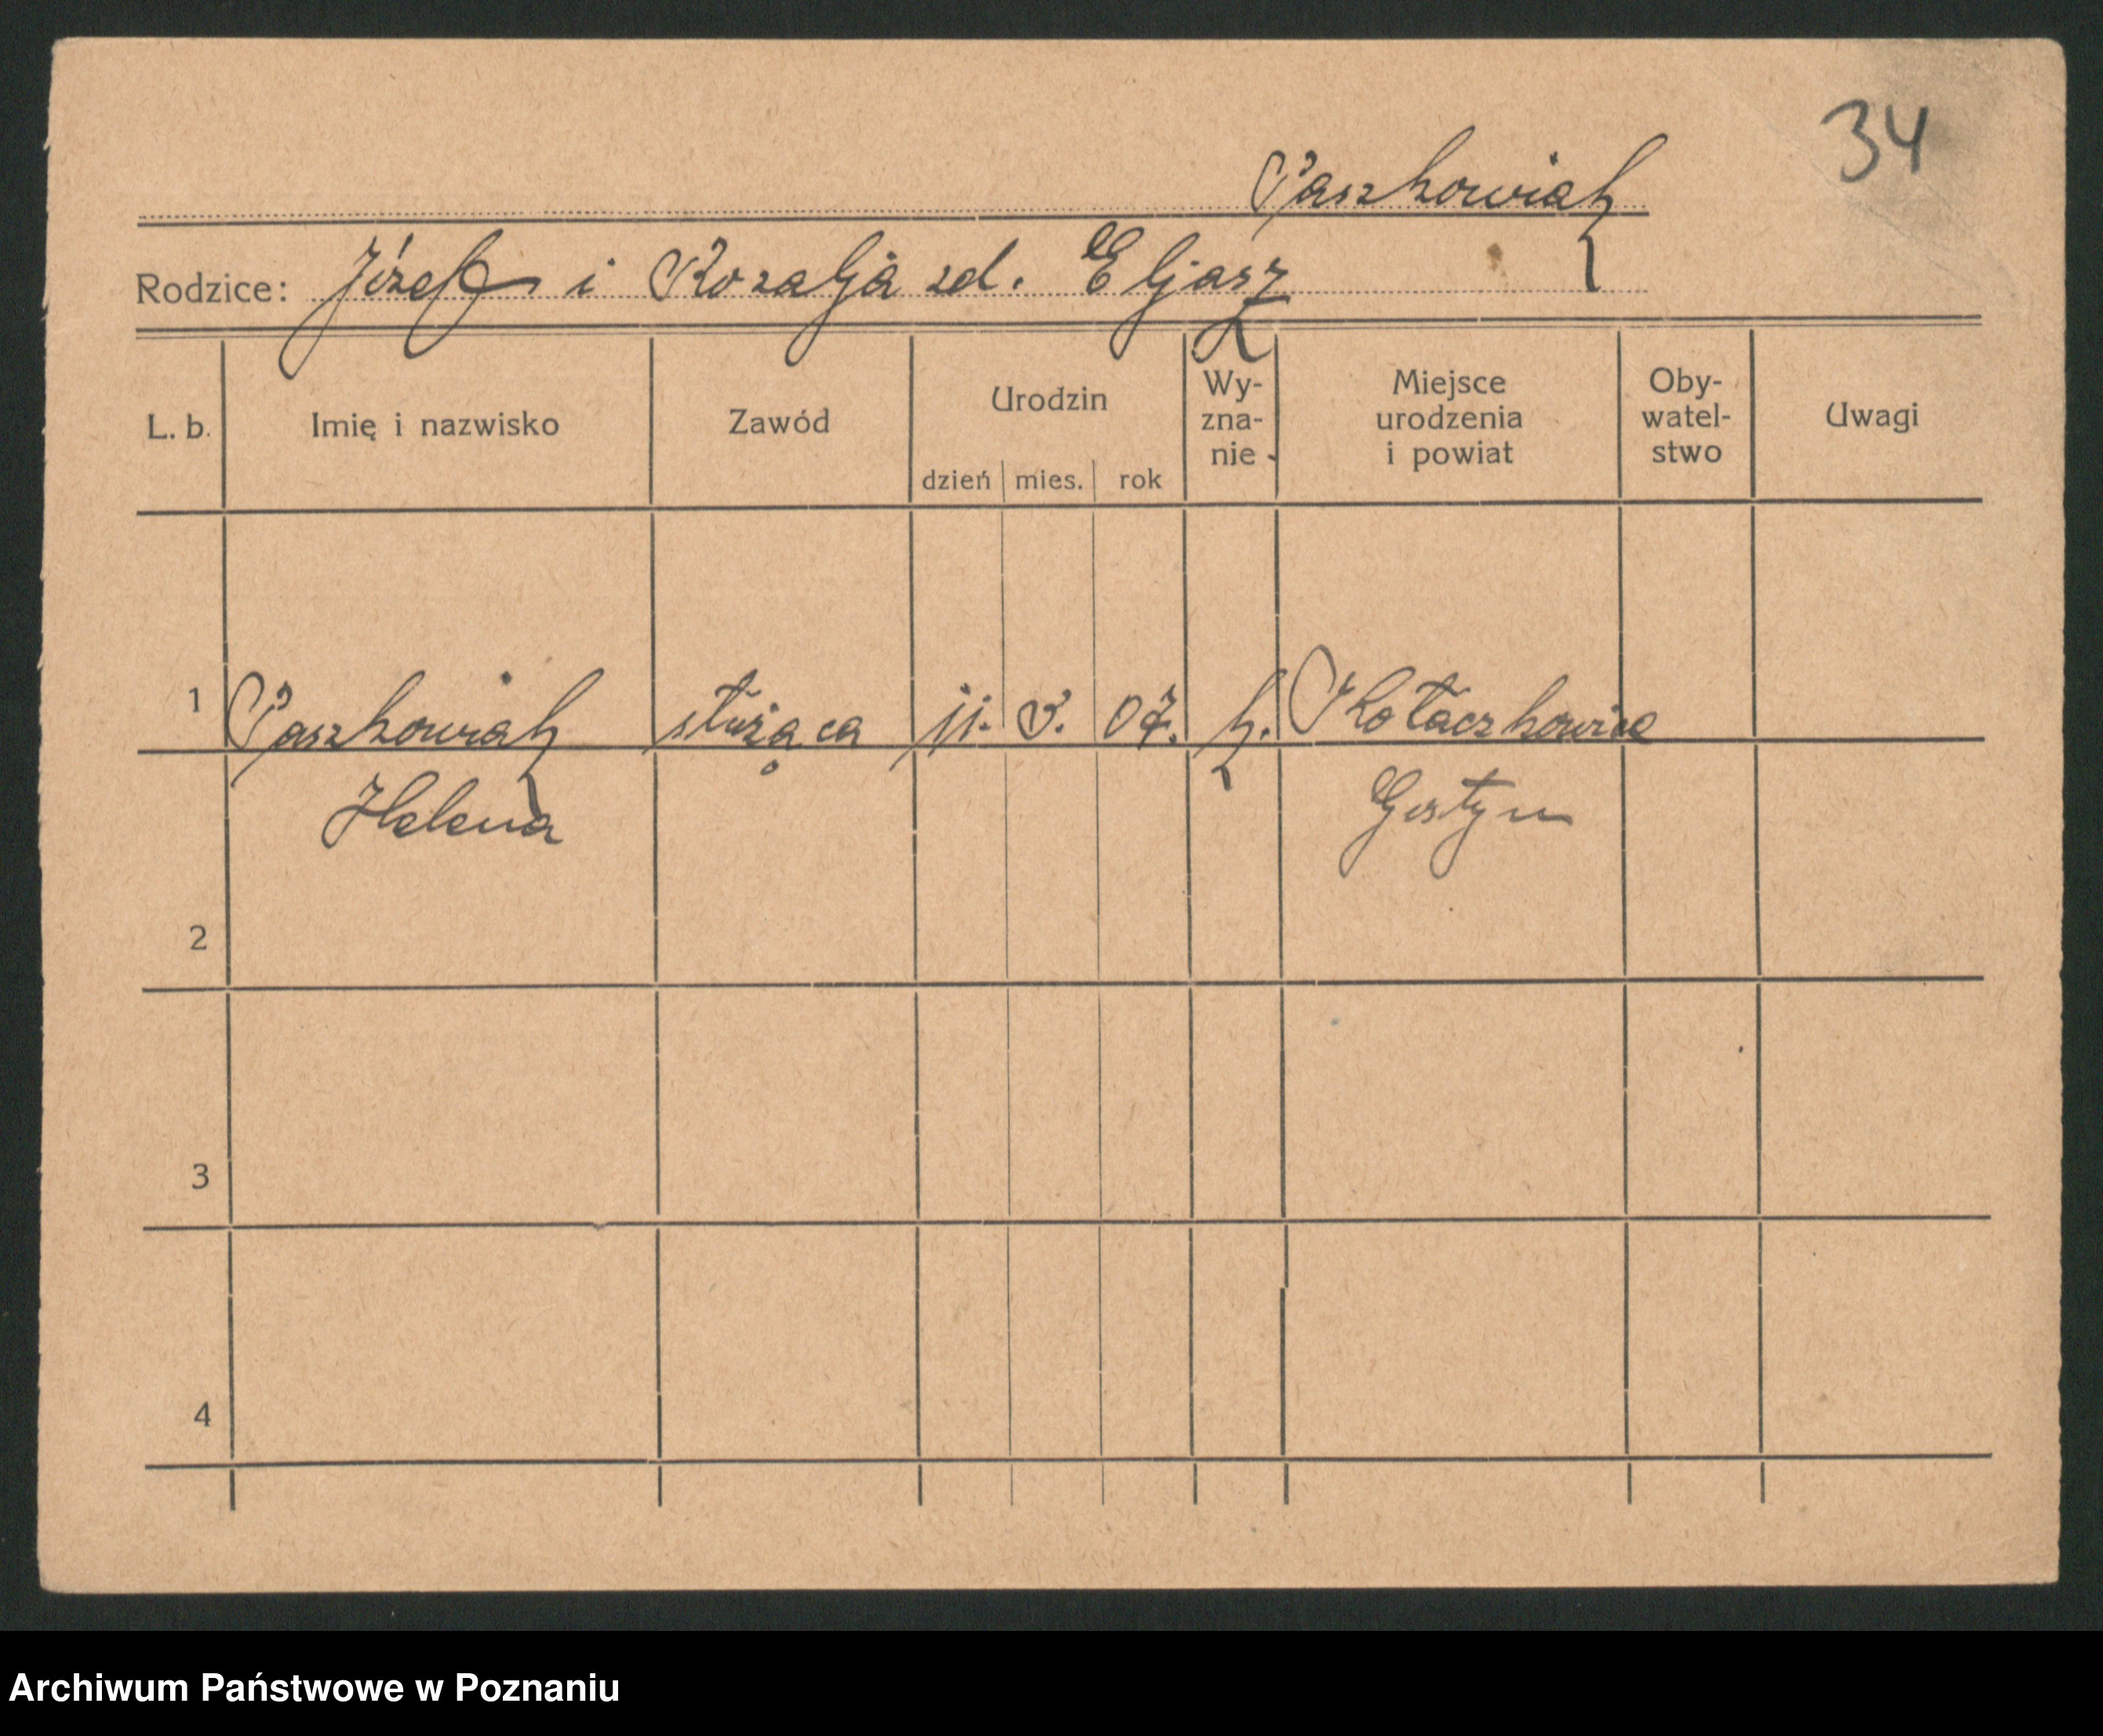 34
Paszkowiak
Rodzice: Józef i Rozalja zd. Eljasz
L. b. Imię i nazwisko Zawód Urodzin dzień mies. rok Wy-zna-nie Miejsce urodzenia i powiat Oby-watel-stwo Uwagi
1 Paszkowiak służąca 11. 3. 07. k. Kołaczkowice
Helena Gostyn
2
3
4
Archiwum Państwowe w Poznaniu